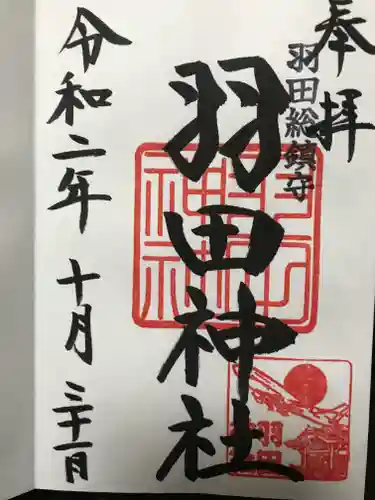 奉拝
羽田総鎮守
羽田神社
令和二年十月三十一日
羽田神社
羽田